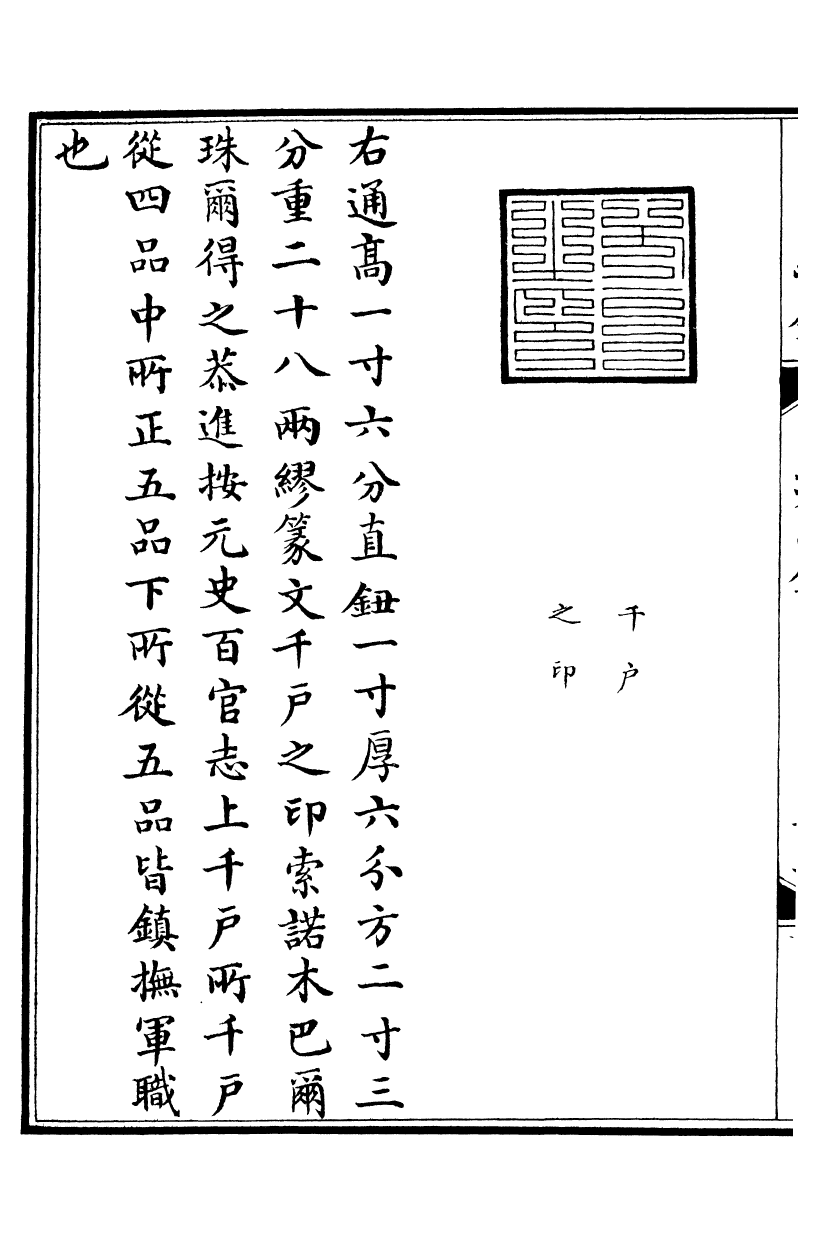 千户
之印
右通髙一寸六分直鈕一寸厚六分方二寸三
分重二十八兩繆篆文千戸之印索諾木巴爾
珠爾得之恭進按元史百官志上千戸所千戸
從四品中所正五品下所從五品皆鎮撫軍職
也